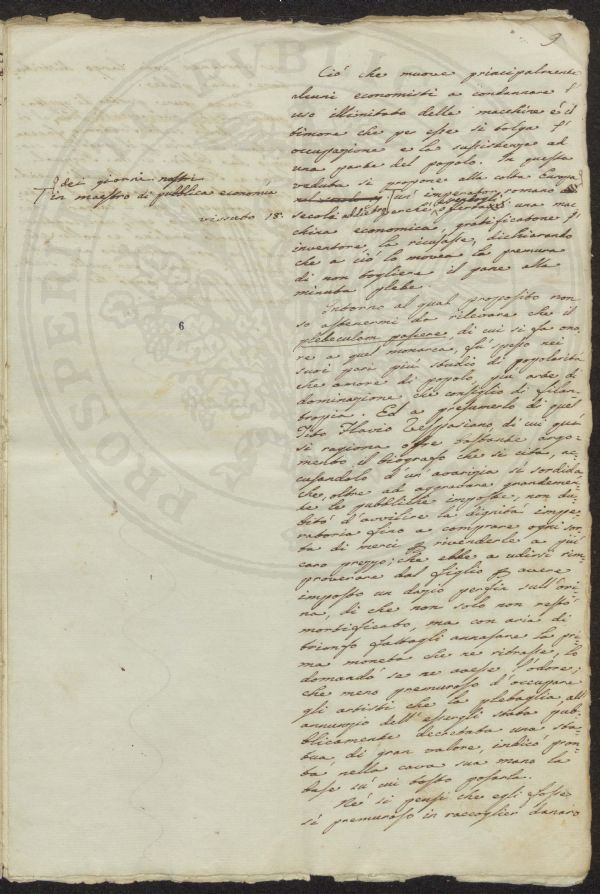 9
Ciò che muove principalmente
alcuni economisti a condannare l'
uso illimitato delle macchine è il
timore che per esse si tolga l'
occupazione e la sussistenza ad
una parte del popolo. In questa
veduta si propone alla colta Europa
un' imperatore romano
secolo addietro perchè offertagli una mac
china economica, gratificatone l'
inventore, la ricusasse, dichiarando
che a ciò lo movea la premura
di non togliere il pane alla
minuta plebe.
Intorno al qual proposito non
so astenermi da rilevare che il
plebeculam pascere, di cui si fa ono
re a quel monarca, fù spesso nei
suoi pari più studio di popolarità
che amore di popolo, più arte di
dominazione che consiglio di filan
tropia. Ed a presumerlo di quel
Tito Flavio Vespasiano, di cui quì
si ragiona offre bastante argo-
mento il biografo che si cita, ac
cusandolo d'un'avarizia sì sordida
che, oltre ad aggravare grandemen
te le pubbliche imposte, non du-
bitò d'avvilire la dignità impe
ratoria fino a comprare ogni sor
ta di merci p rivenderle a più
caro prezzo; che ebbe a udirsi rim
proverare dal figlio p avere
imposto un dazio persin sull'ori
na, di che non solo non restò
mortificato, ma con aria di
trionfo fattagli annasare la pri
ma moneta che ne ritrasse, lo
domandò se ne avesse l'odore;
che meno premuroso d'occupare
gli artisti che la plebaglia, all'
annunzio dell'essergli stata pub-
blicamente decretata una sta-
tua, di gran valore, indicò pron
ta nella cava sua mano la
base su cui tosto posarla.
Nè si pensi che egli fosse
sì premuroso in raccoglier danaro
dei giorni nostri
in maestro di pubblica economia
vissuto 18
6
PROSPERI
PVBLI